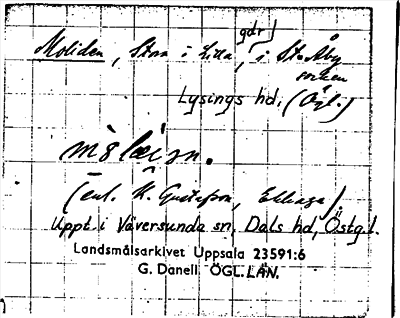 gdr)
Moliden, Stora i Lilla, i St. Åby
socken
Lysings hd, (Ögl.)
(enl. K. Gustafson, Ellinge).
Uppt. i Väversunda sn, Dals hd, Östg.l.
Landsmålsarkivet Uppsala 23591:6
G. Danell ÖGL. LÄN.